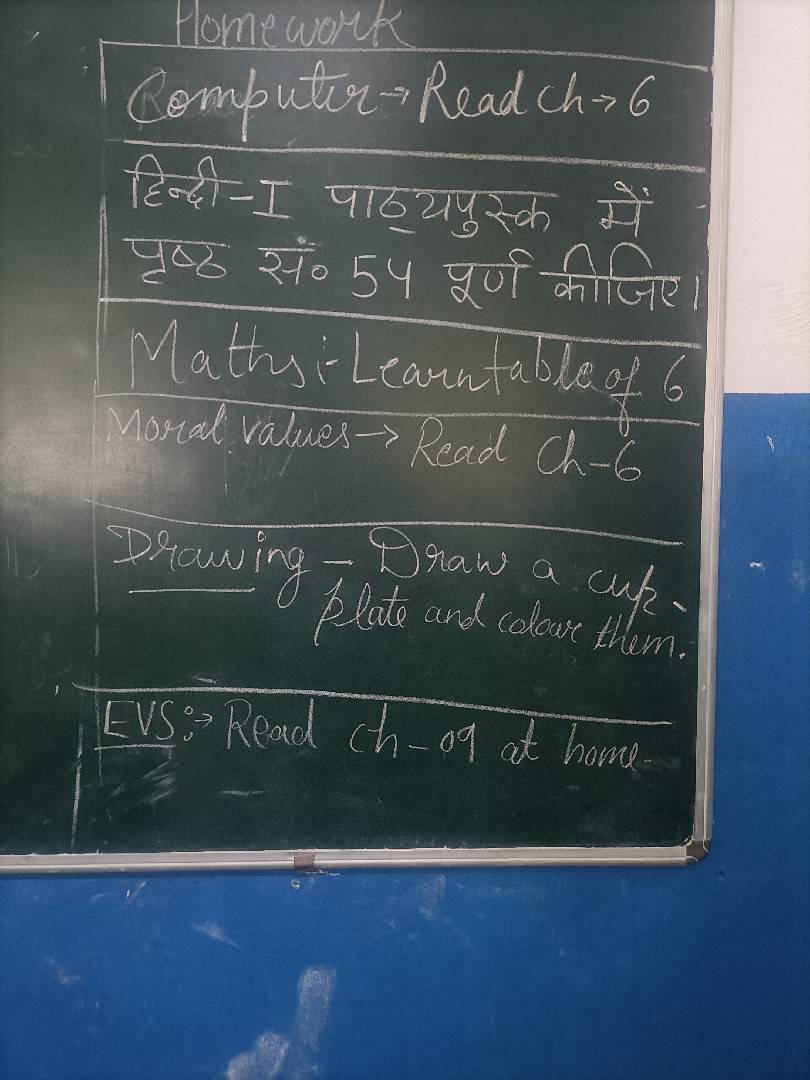 Homework
Computer → Read ch → 6
हिन्दी - I पाठ्यपुस्क में
पृष्ठ सं॰ 54 पूर्ण कीजिए।
Maths :- Learn table of 6
Moral values → Read Ch-6
Drawing - Draw a cup,
plate and colour them.
EVS :→ Read ch-09 at home.